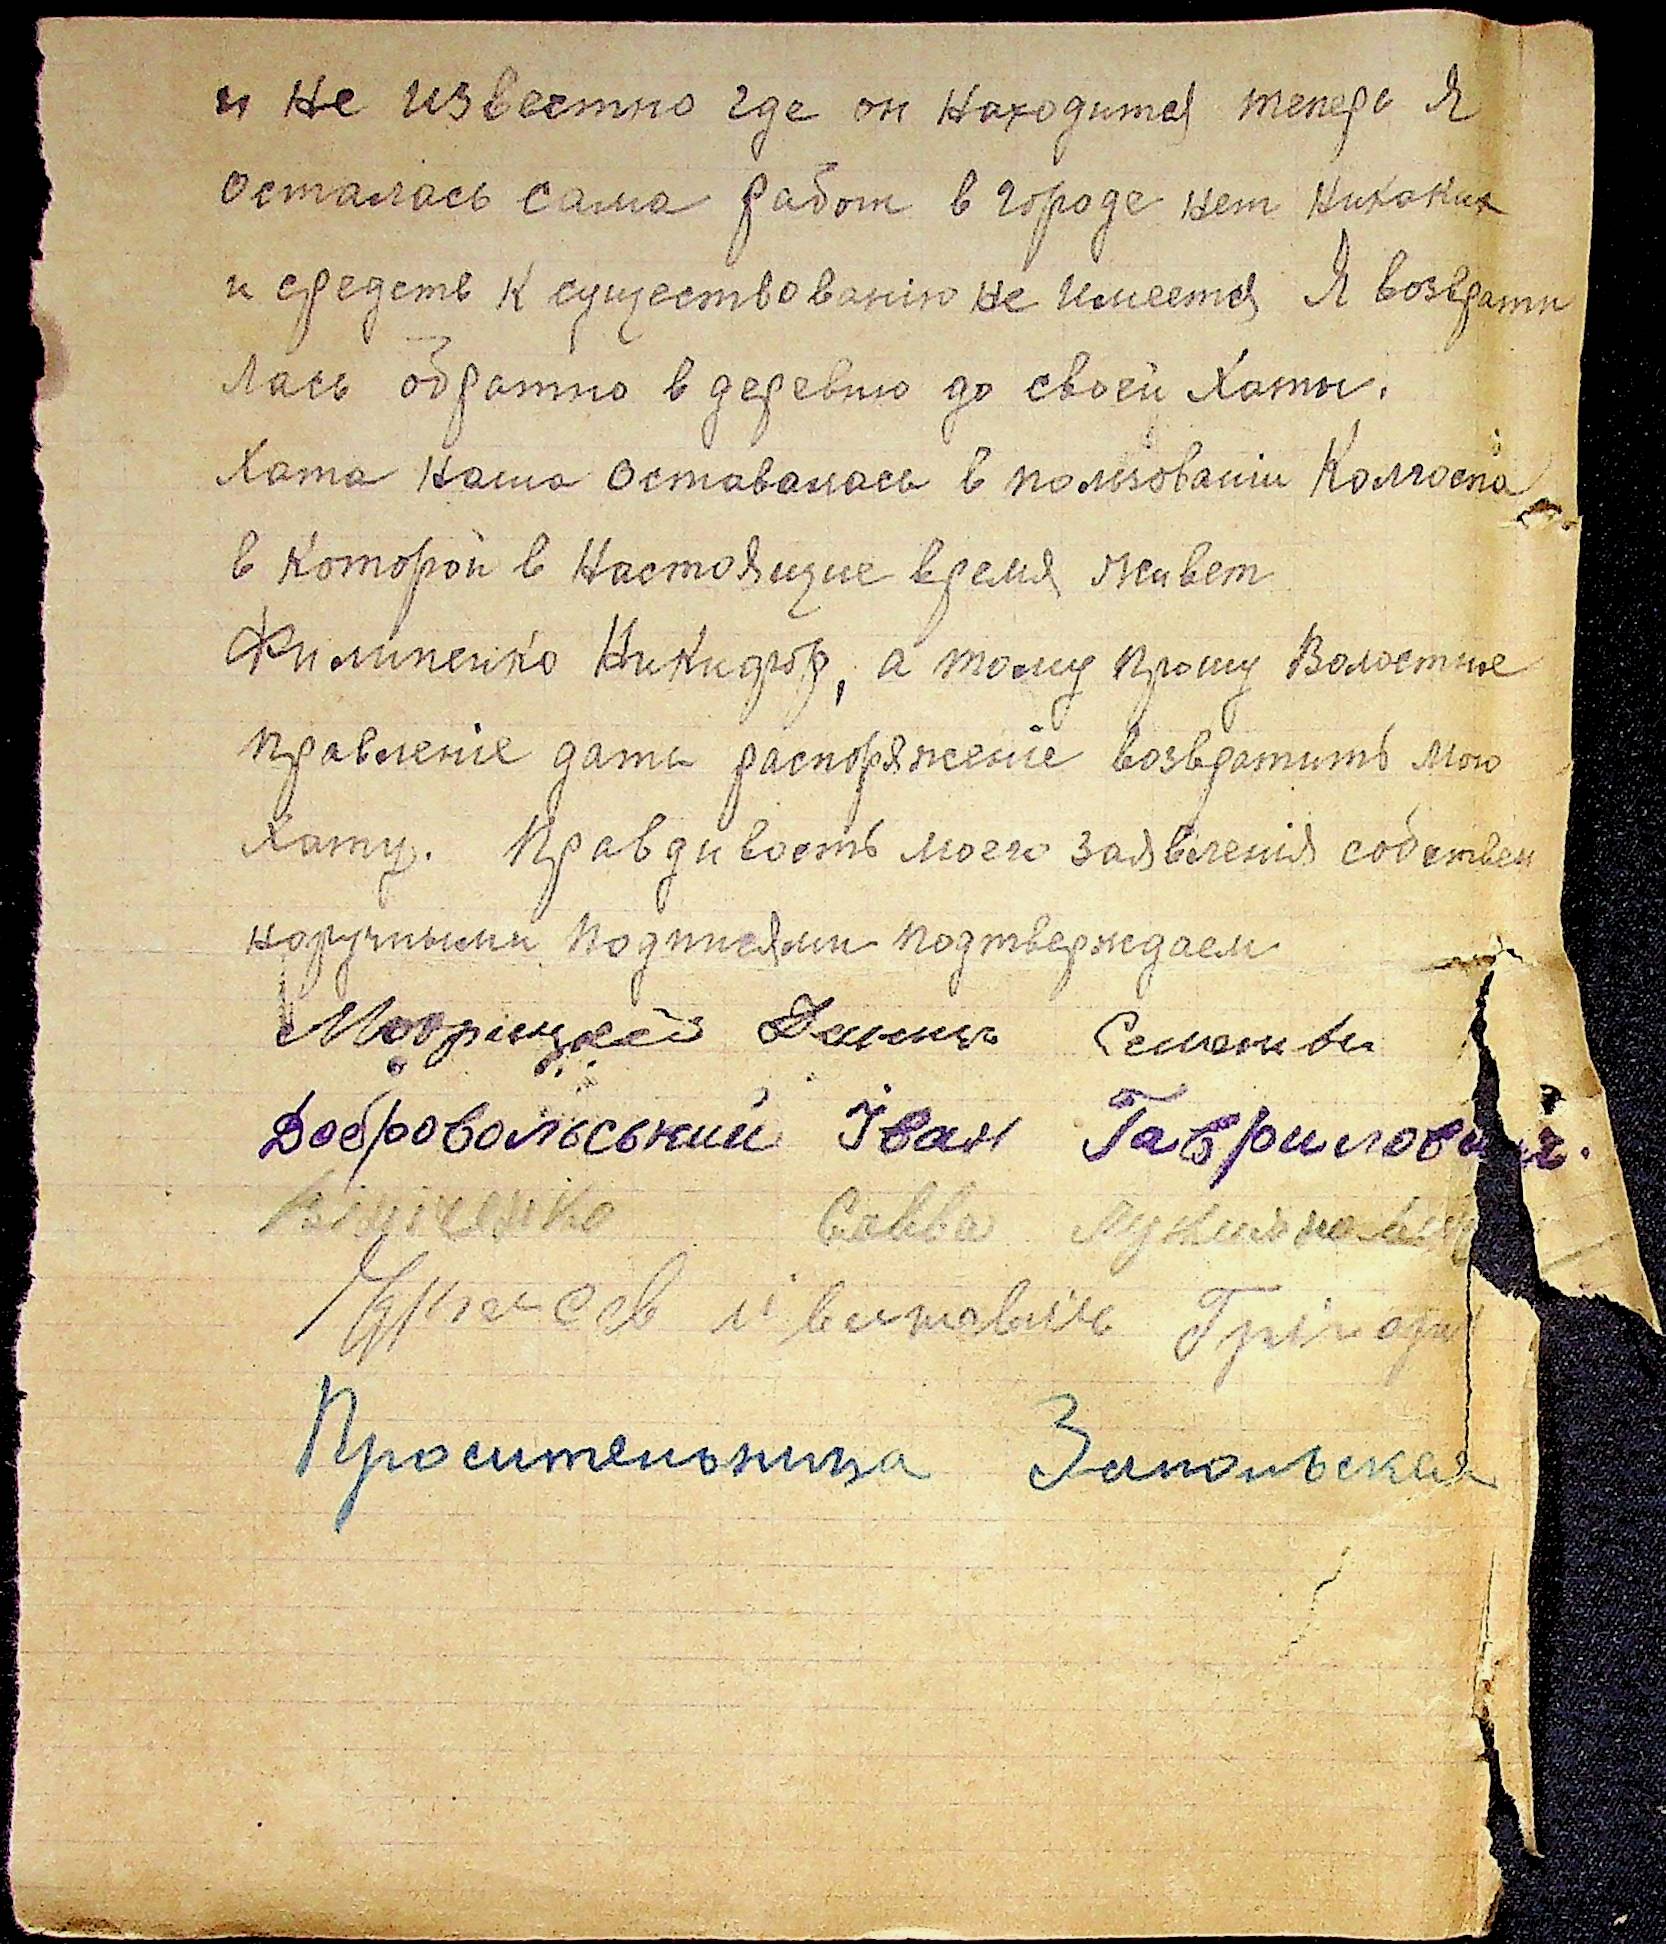 и не известно где он находится теперь Я
осталась сама работ в городе нет никаких
и средств к существованію не имеется Я возврати
лась обратно в деревню до своей хаты.
Хата наша оставалась в пользованіи Колгоспа
в которой в настоящие время живет
Филипенко Никидфор, а тому прошу Волостные
правленіе дать распоряженіе возвратить мою
хату. Правдивость моего заявленія собствен
норучными подписями подтверждаем
Добровольський Іван Гаврилович.
Вініченко Савва
Просительница Запольская